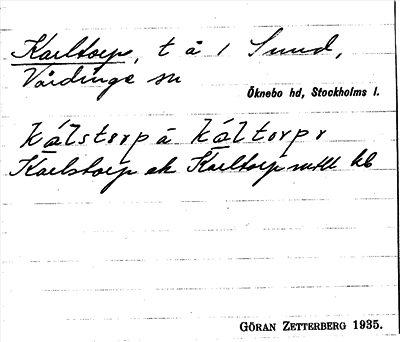 Karltorp, t å 1 Sund,
Vårdinge sn
Öknebo hd, Stockholms l.
kálstorp å káltorp r
Karlstorp ek Karltorp mtll kb
GÖRAN ZETTERBERG 1935.